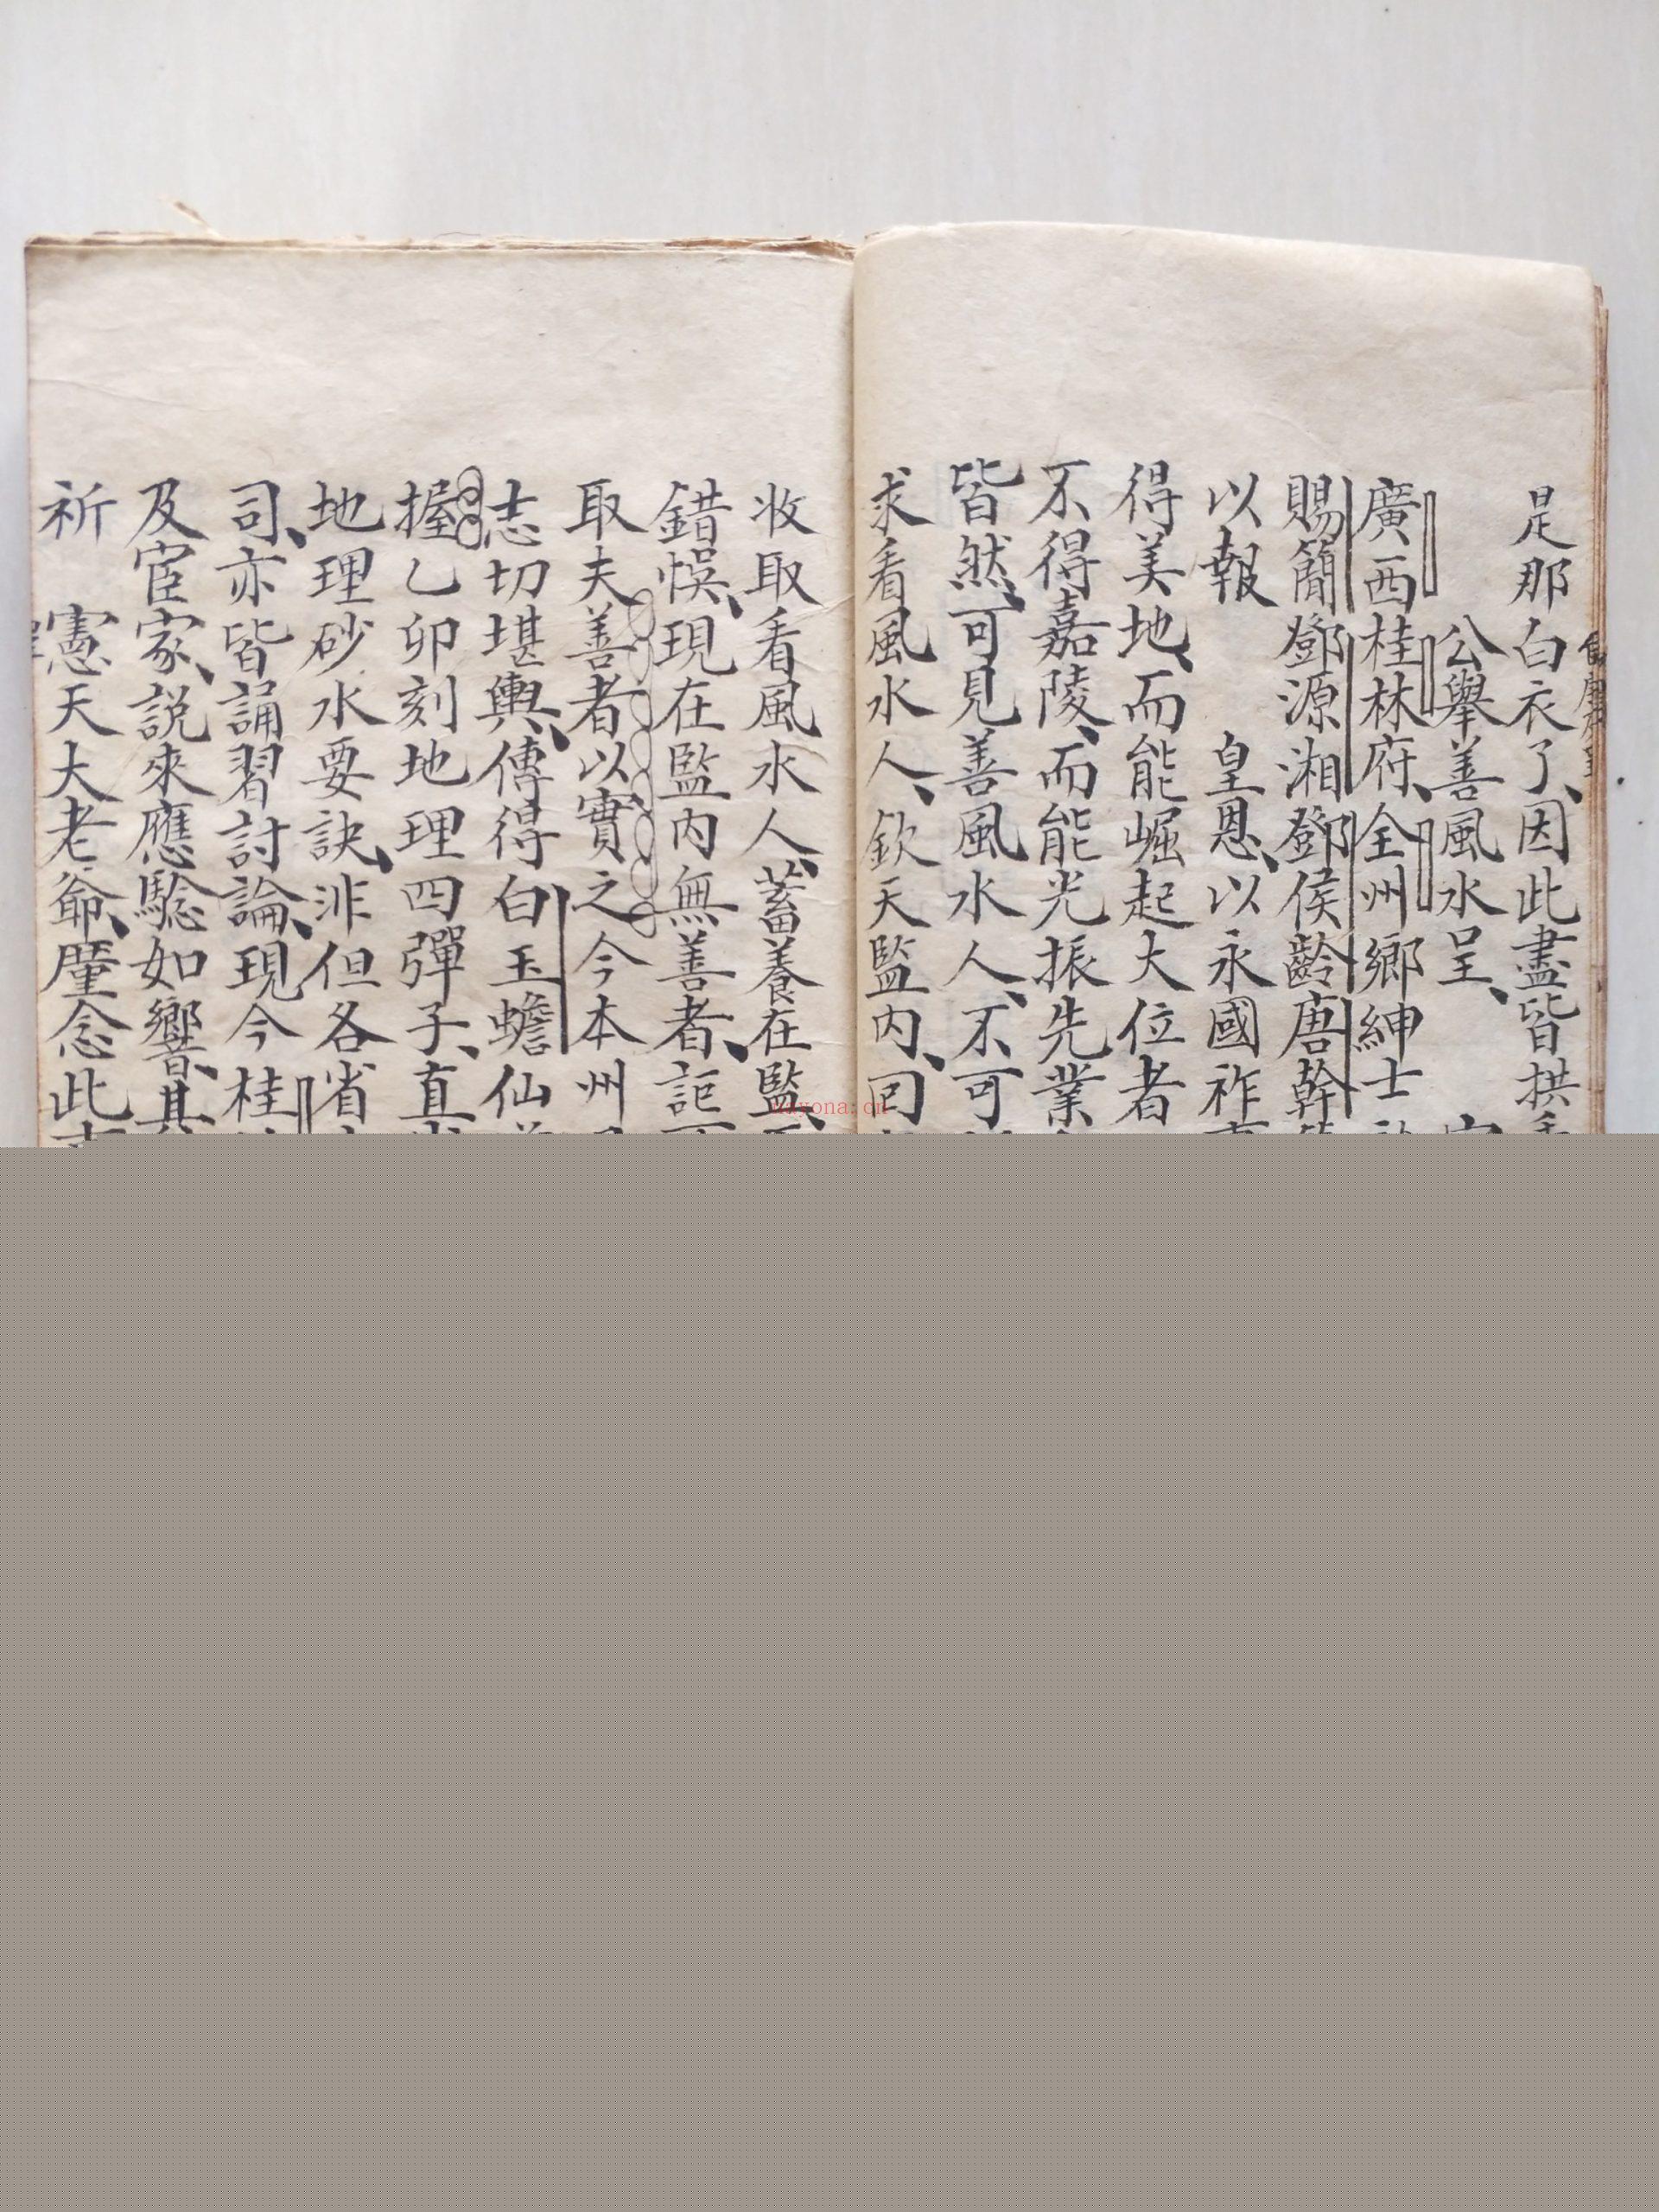 是那白衣了、因此盡皆拱
公舉善風水呈、
廣西桂林府、全州鄉紳士
賜簡鄧源湘鄧侯齡唐幹
以報 皇恩、以永國祚
得美地、而能崛起大位者
不得嘉陵、而能光振先業
皆然、可見善風水人、不可
求看風水人、欽天監內、囘
收取看風水人、蓄養在監、
錯悞、現在監內無善者、詎
取夫善者、以實之、今本州
志切堪輿、傳得白玉蟾仙
握乙卯刻地理四彈子、真
地理砂水要訣、非但各省
司、亦皆誦習討論、現今桂
及宦家、說來應驗如響、其
祈 憲天大老爺、廑念此